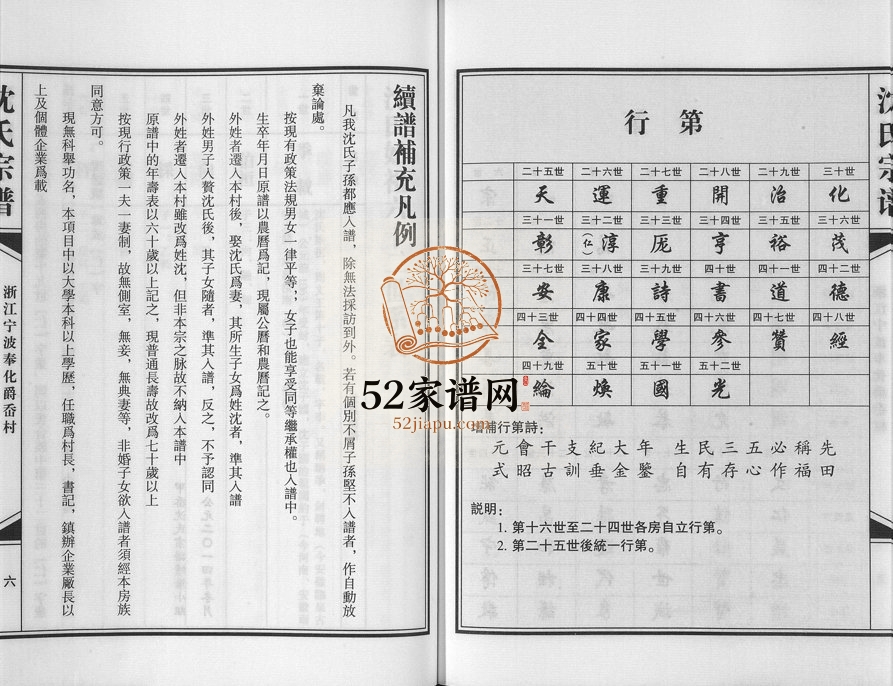 沈氏宗譜
行 第
二十五世 二十六世 二十七世 二十八世 二十九世 三十世
天 運 重 開 治 化
三十一世 三十二世 三十三世 三十四世 三十五世 三十六世
彰 (仁)淳 厐 亨 裕 茂
三十七世 三十八世 三十九世 四十世 四十一世 四十二世
安 康 詩 書 道 德
四十三世 四十四世 四十五世 四十六世 四十七世 四十八世
全 家 學 參 贊 經
四十九世 五十世 五十一世 五十二世
綸 煥 國 光
增補行第詩:
元會干支紀大年 生民三五必稱先
式昭古訓垂金鑒 自有存心作福田
説明:
1. 第十六世至二十四世各房自立行第。
2. 第二十五世後統一行第。
續譜補充凡例
凡我沈氏子孫都應入譜，除無法採訪到外。若有個別不屑子孫堅不入譜者，作自動放
棄論處。
按現有政策法規男女一律平等；女子也能享受同等繼承權也入譜中。
生卒年月日原譜以農曆爲記，現屬公曆和農曆記之。
外姓者遷入本村後，娶沈氏爲妻，其所生子女爲姓沈者，準其入譜
外姓男子入贅沈氏後，其子女隨者，準其入譜，反之，不予認同
外姓者遷入本村雖改爲姓沈，但非本宗之脉故不納入本譜中
原譜中的年壽表以六十歲以上記之，現普通長壽故改爲七十歲以上
按現行政策一夫一妻制，故無側室，無妾，無典妻等，非婚子女欲入譜者須經本房族
同意方可。
現無科舉功名，本項目中以大學本科以上學歷，任職爲村長，書記，鎮辦企業厰長以
上及個體企業爲載
沈氏宗譜
浙江宁波奉化爵岙村
六
52家谱网
52jiapu.com